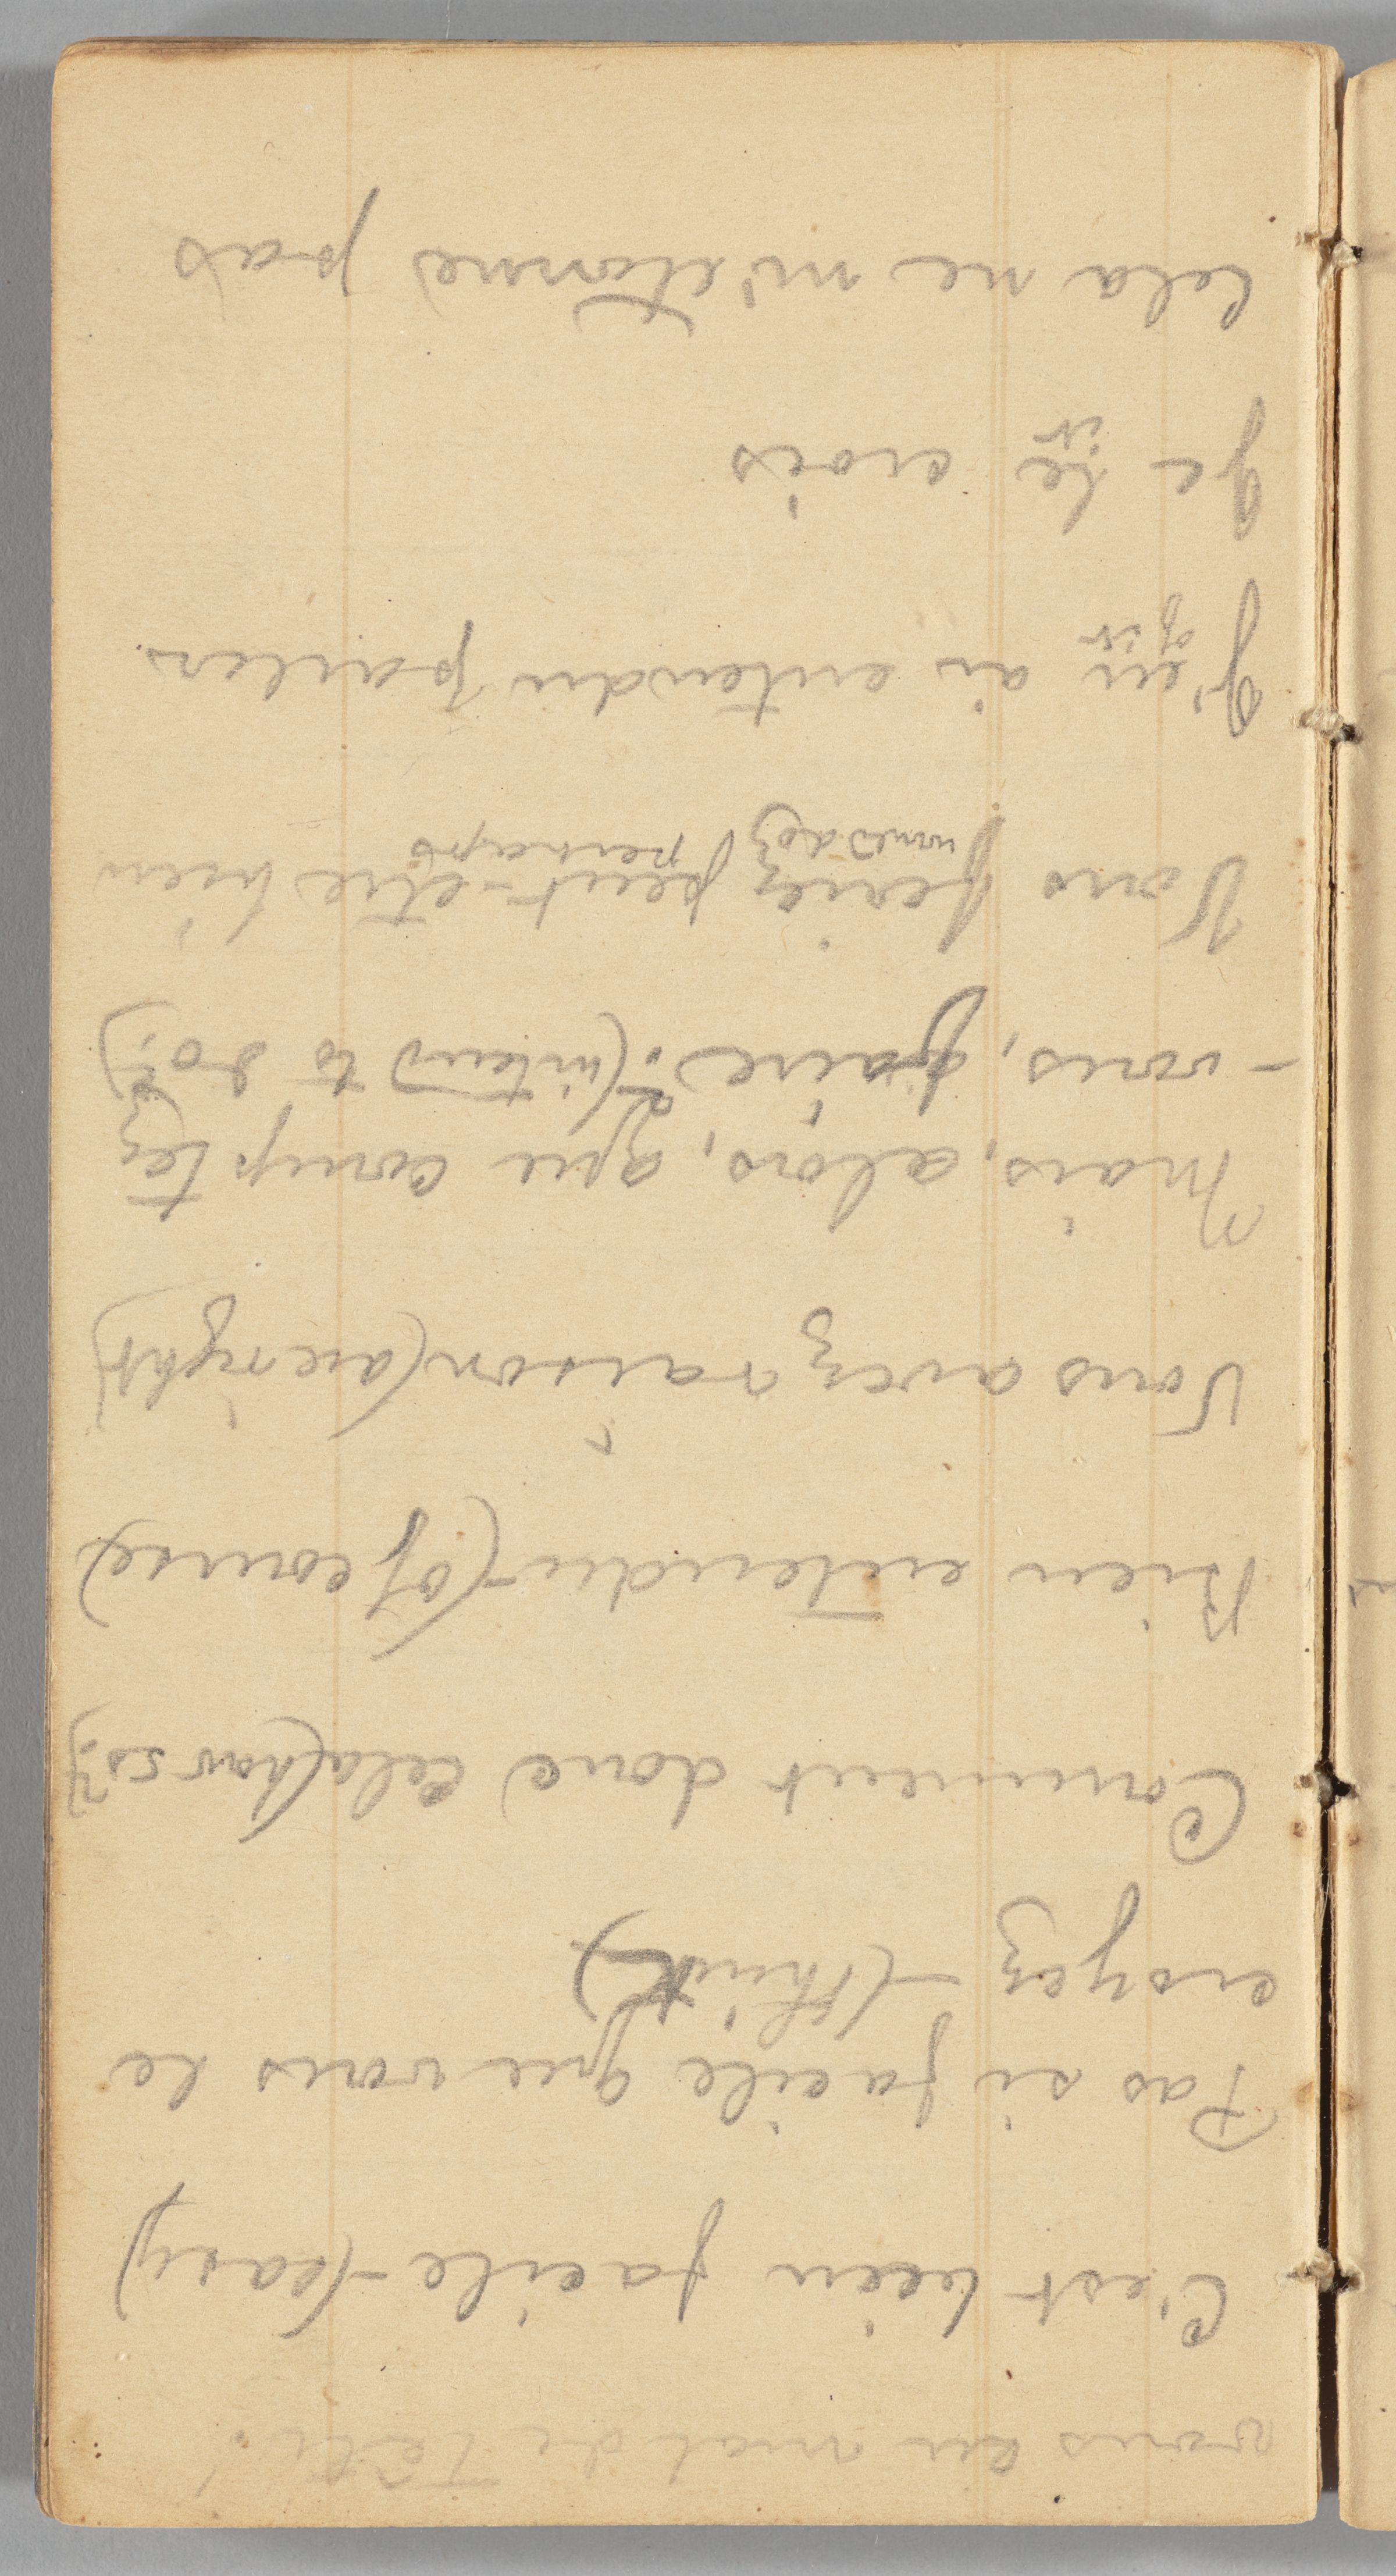 vous un mal de tête!
C'est bien facile - (easy)
Pas si facile que vous le
croyez - (think)
Comment donc cela (how so?)
Bien entendu - (of course)
Vous avez raison (are right)
Mais, alors, que comptez
- vous, faire? (intend to do?)
Vous feriez peut-etre bien
perhaps
J'en ai entendu parler
of it
Je le crois
it
Cela ne m'étonne pas